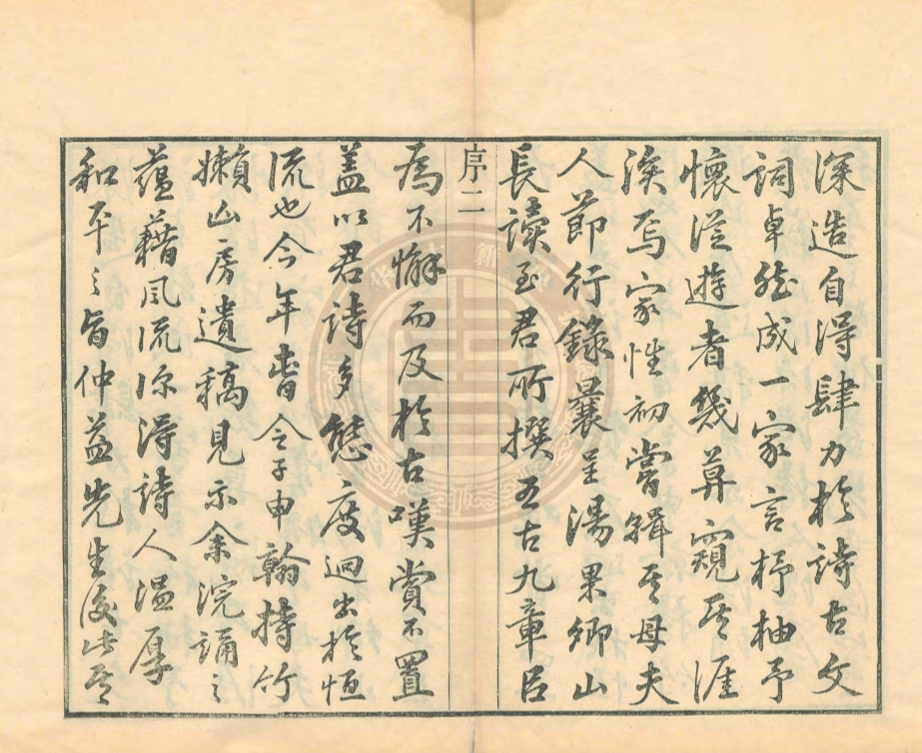 深造自得肆力於詩古文
詞卓然成一家言杼柚予
懷從遊者幾莫窺其涯
涘焉家性初嘗輯其母夫
人節行錄曩呈湯果卿山
長讀至君所撰五古九章呂
序二
為不懈而及於古嘆賞不置
蓋以君詩多態度迥出於恒
流也今年春令子申翰持竹
嬾山房遺稿見示余浣誦之
蘊藉風流深得詩人溫厚
和平之旨仲益先生後此其